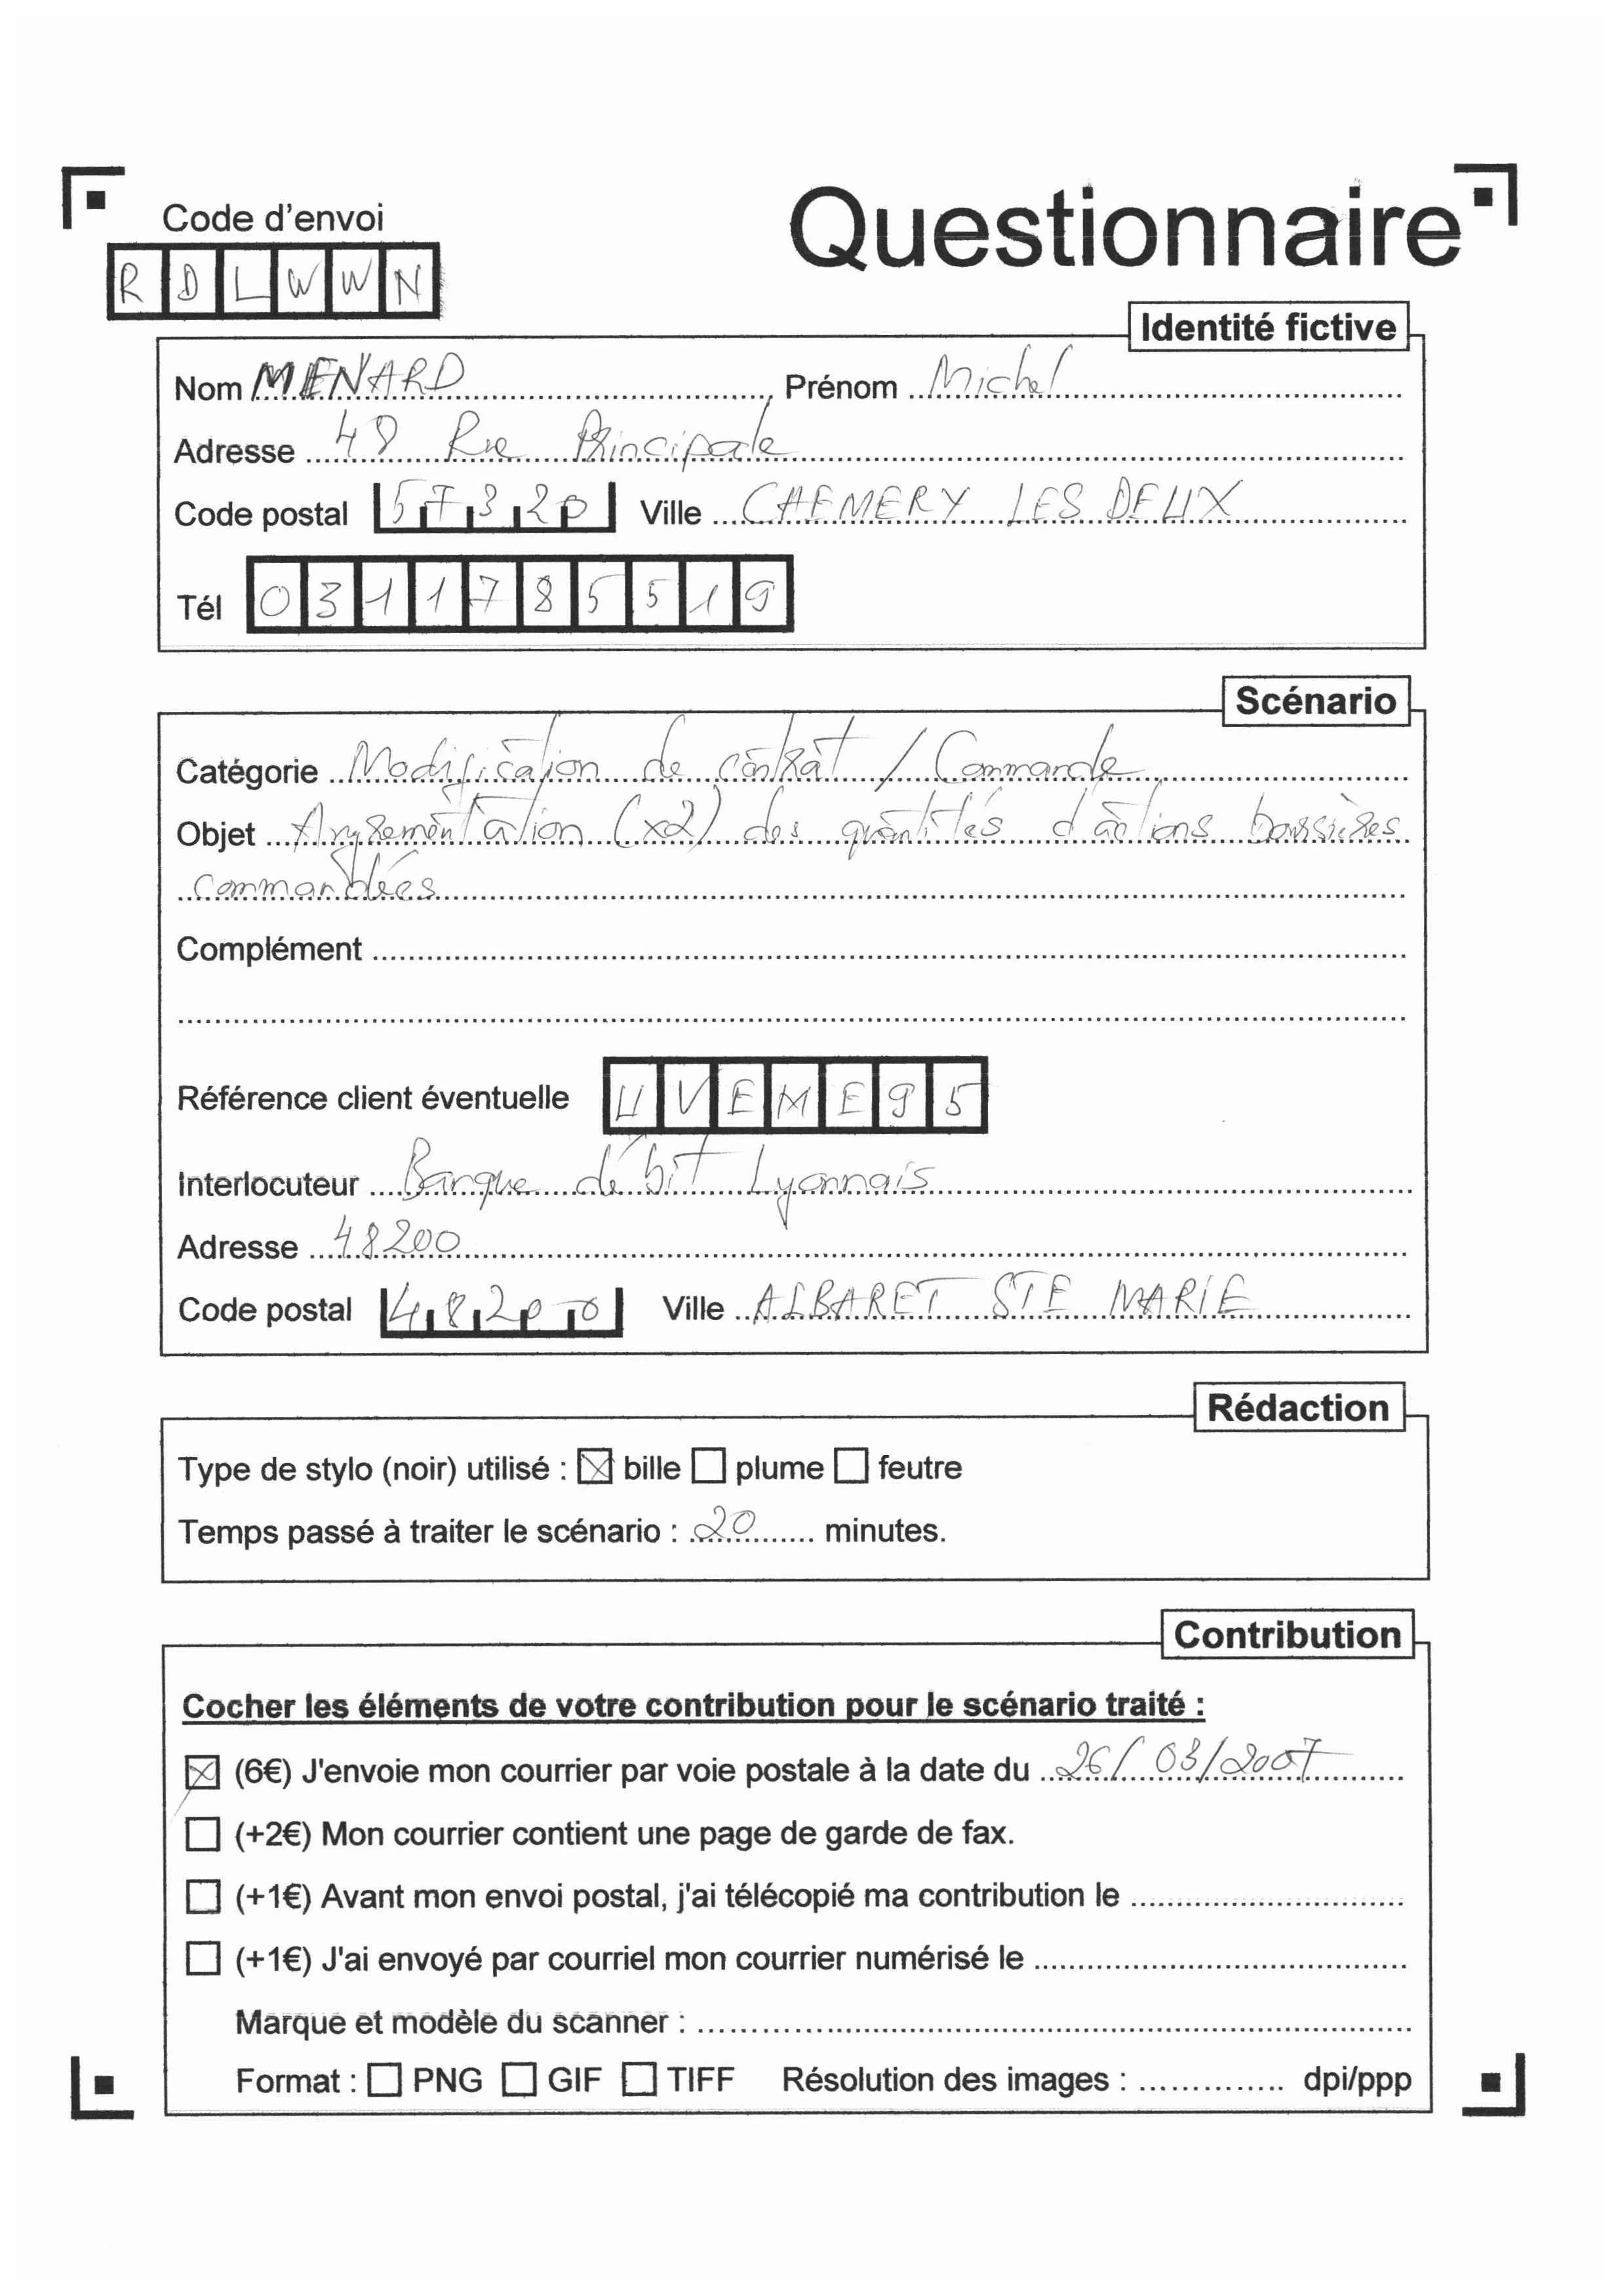 Code d'envoi
Questionnaire
R D L W W N
Identité fictive
Nom MENARD Prénom Michel
Adresse 48 Rue Principale
Code postal 57320 Ville CHEMERY LES DEUX
Tél 0311785519
Scénario
Catégorie Modification de contrat / Commande
Objet (x2) des quantités d'actions boursières
commandées
Complément
Référence client éventuelle UVEME95
Interlocuteur Banque débit Lyonnais
Adresse 48200
Code postal 48200 Ville ALBARET STE MARIE
Rédaction
Type de stylo (noir) utilisé : bille plume feutre
Temps passé à traiter le scénario : 20 minutes.
Contribution
Cocher les éléments de votre contribution pour le scénario traité :
(6€) J'envoie mon courrier par voie postale à la date du 26/03/2007
(+2€) Mon courrier contient une page de garde de fax.
(+1€) Avant mon envoi postal, j'ai télécopié ma contribution le
(+1€) J'ai envoyé par courriel mon courrier numérisé le
Marque et modèle du scanner :
Format : PNG GIF TIFF Résolution des images : dpi/ppp